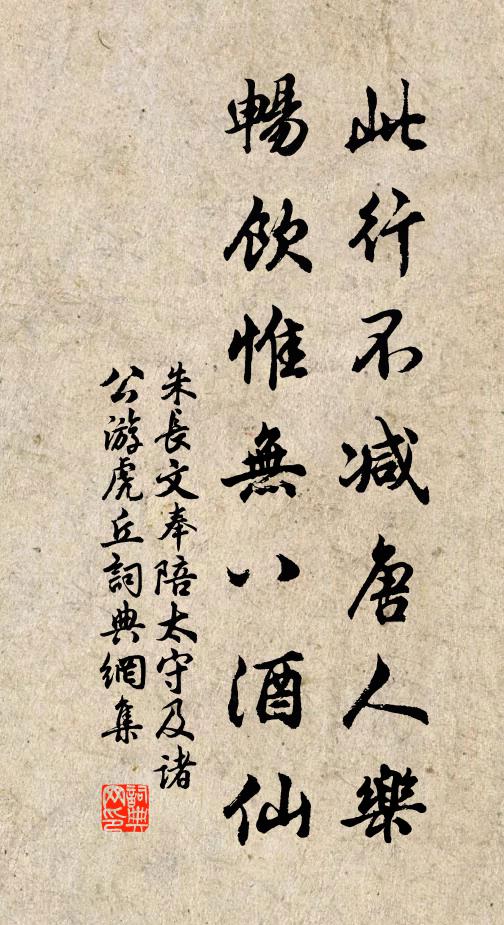 此行不减唐人樂
暢飲惟無八酒仙
朱長文奉陪太守及諸
公游虎丘詞典網集
詞典網印